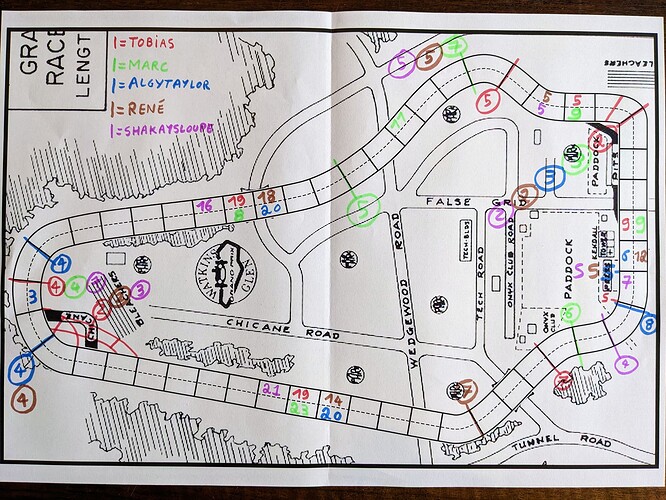 GRA
RACE
LENGT
1=TOBIAS
1=MARC
1=ALGYTAYLOR
1=RENÉ
1=SHAKAYSLOUPE
5 5 7
5
BLEACHERS
5 5
5 9
11
PADDOCK
PITS
3
2
2
5
FALSE GRID
16 19 18
8 20
WALKING
GLEN
WEDGEWOOD ROAD
TECH. BLDG
TECH ROAD
ONYX CLUB ROAD
PADDOCK
KENDALL
TOWER
9 9
6 12
S 5
7
5
8
ONYX
CLUB
4
4 4
3
BLEACHERS
3
CHICANE
CHICANE ROAD
4
4
21 19 14
23 20
7
TUNNEL ROAD